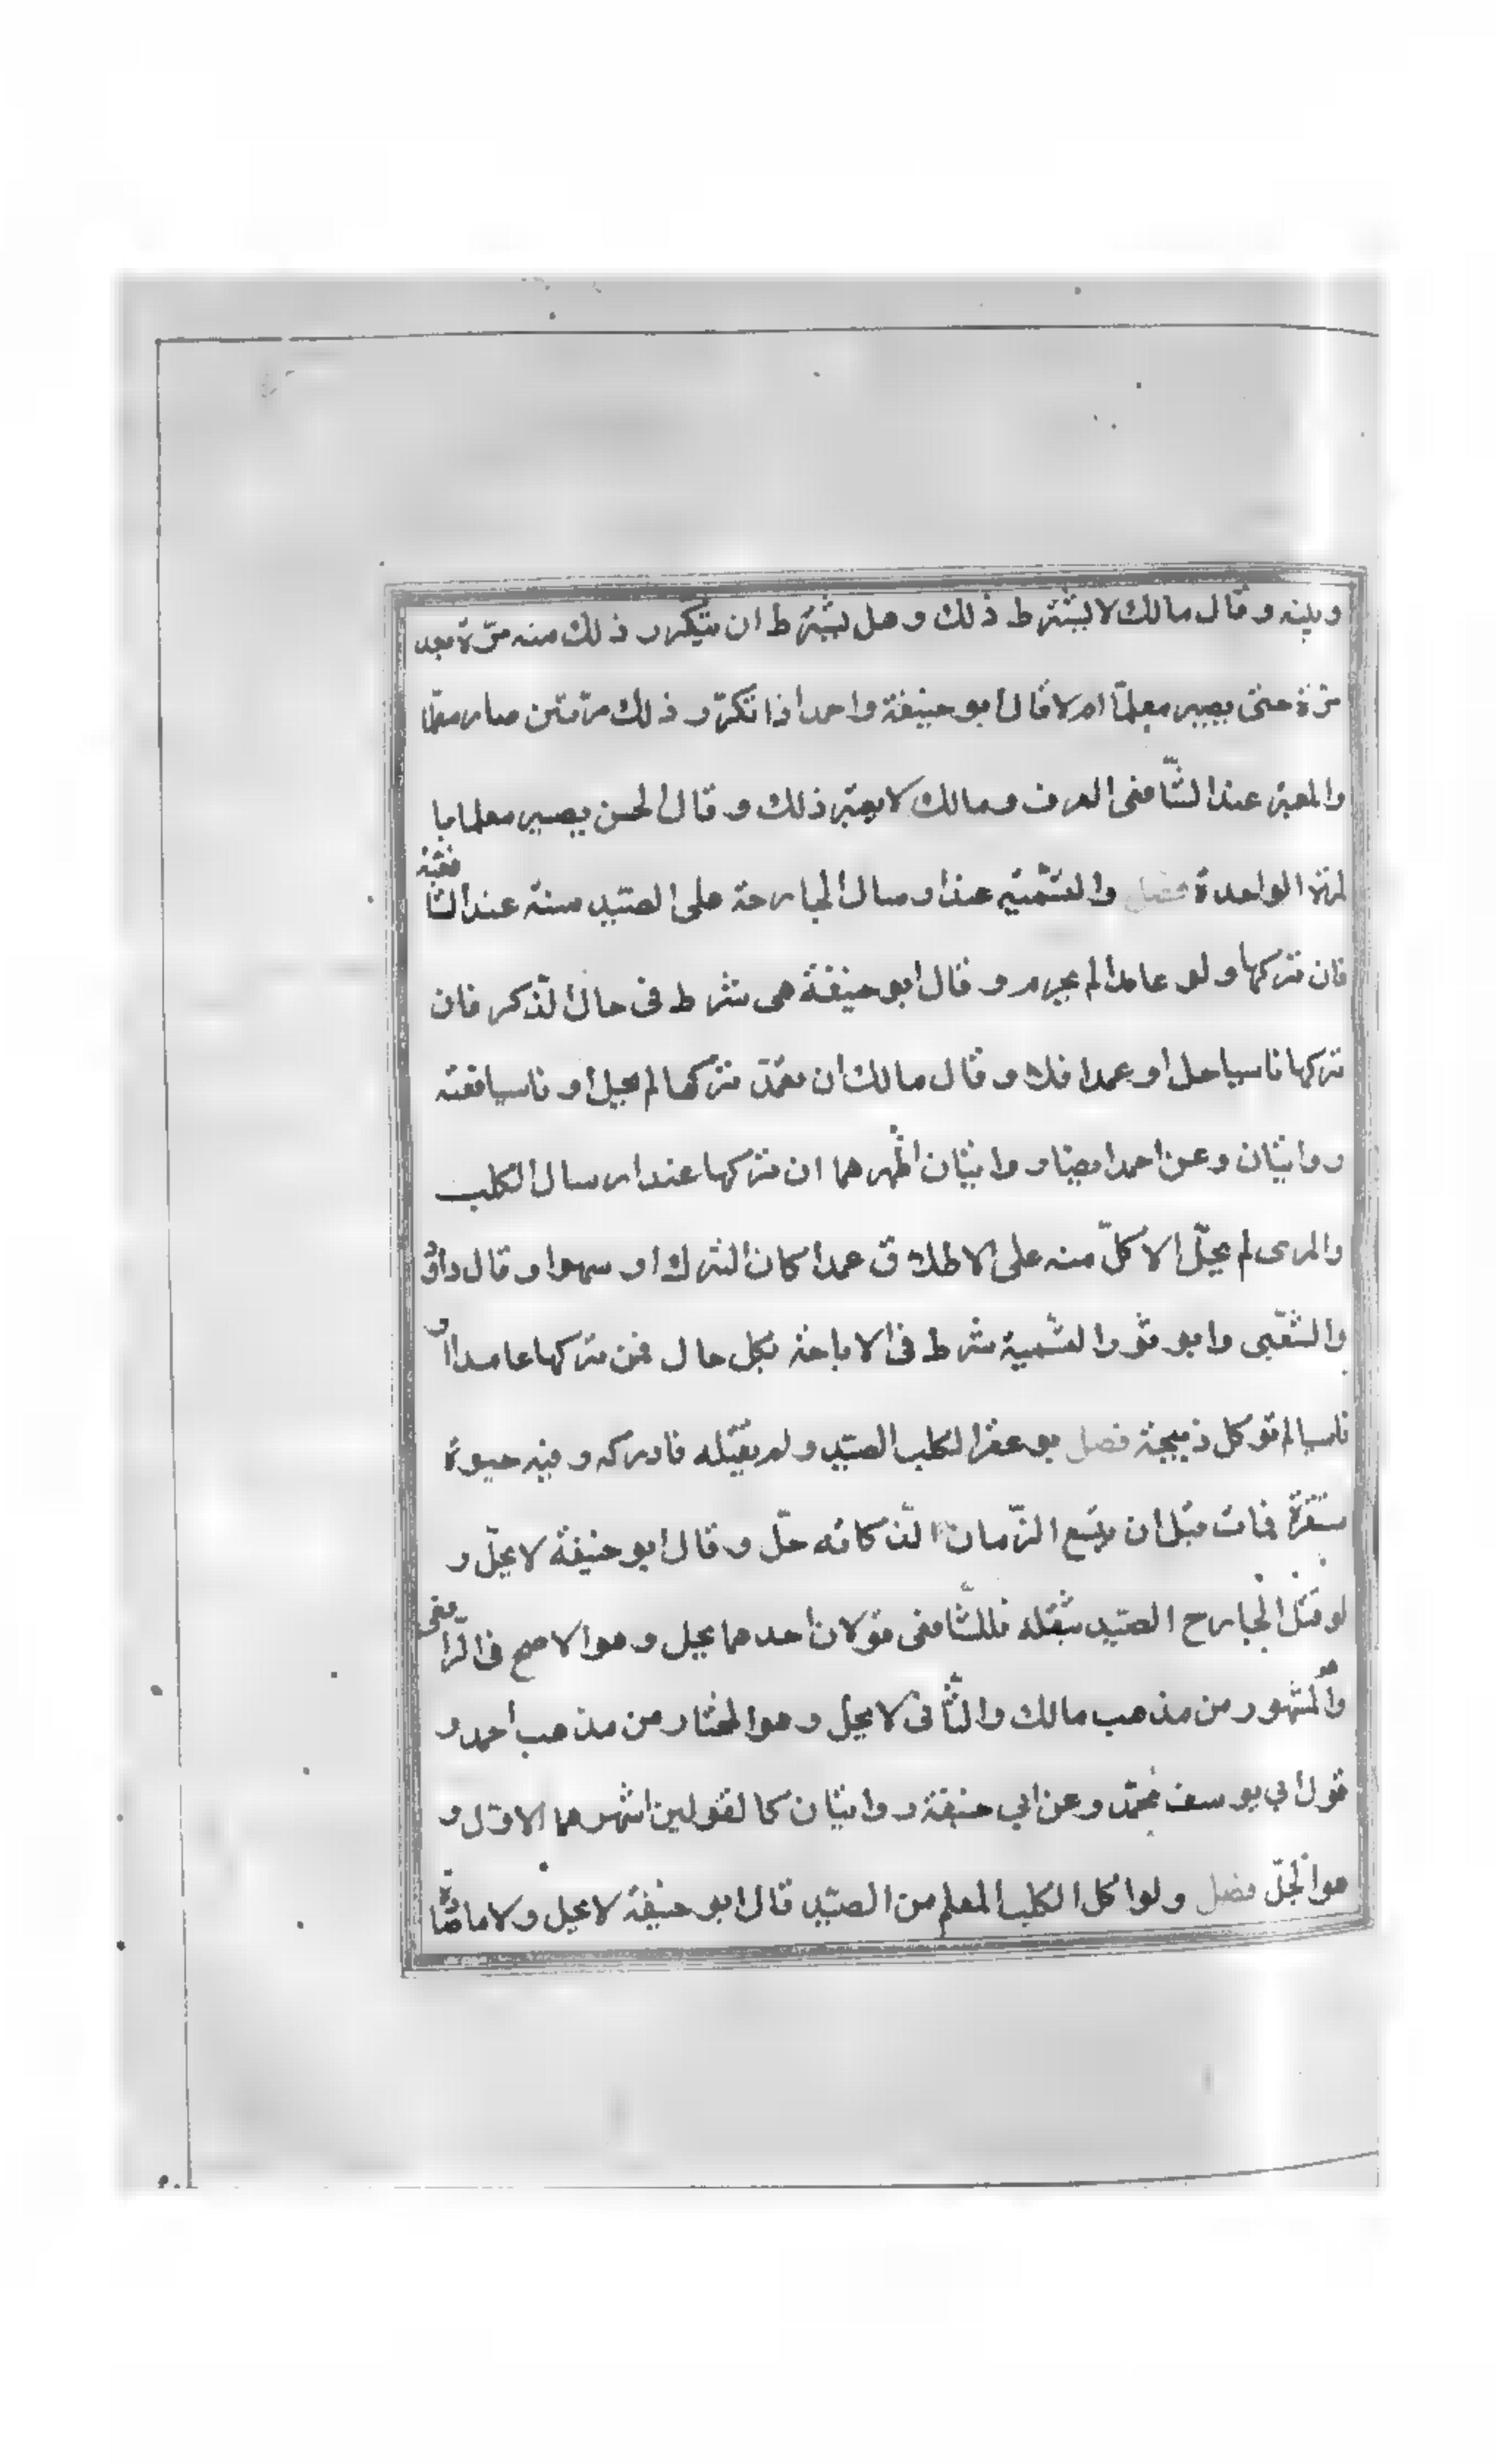 وبينه وقال مالك لا يشترط ذلك وهل يشترط ان يتكرر ذلك منه مرّة بعد
مرّة حتى يصير معلمّا ام لا قال ابو حنيفة واحمد اذا تكرّر ذلك مرّتين صار معلّما
والمعبتر عند الشّافعى العرف ومالك لا يعتبر ذلك وقال الحسن يصير معلما با
لمرّة الواحدة فصل والتسّميّه عند ارسال الجارحة على الصّيد سنة عند الشافعيّة
فان تركها ولو عامدا لم يحرم وقال ابو حنيفة هى شرط فى حال الذّكر فان
تركها ناسيا حل او عمدا فلا وقال مالك ان تعمّد تركها لم يحل او ناسيا فعنه
روايتان وعن احمد ايضا روايتان اظهرهما ان تركها عند ارسال الكلب
والرمى لم يحلّ الاكلّ منه على الاطلاق عمدا كان الترك او سهوا وقال داؤد
والشّعبى وابو ثور التسّمية شرط فى الاباحة بكل حال فمن تركها عامدا او
ناسيا لم توكل ذبيحة فصل لو عقر الكلب الصّيد ولم يقتله فادركه وفيه حيوة
مستقرّة فمات قبل ان يتّسع الزّمان الذكاته حلّ وقال ابو حنيفة لا يحلّ و
لو قتل الجارح الصّيد بثقله فللشّافعى قولان احدهما يحل وهو الاصح فى الرّافعى
والمشهور من مذهب مالك والثّانى لا يحل وهو المختار من مذهب احمد و
قول ابي يوسف محمّد وعن ابي حنيفة روايتان كالقولين اشهرهما الاوّل و
هو الحلّ فصل ولو اكل الكلب المعلم من الصّيد قال ابو حنيفة لا يحل ولا ما صّا